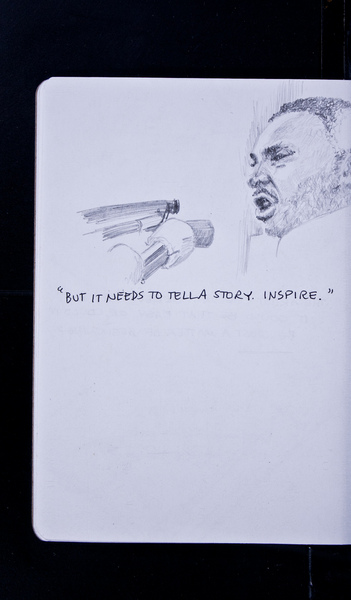 "BUT IT NEEDS TO TELL A STORY. INSPIRE."